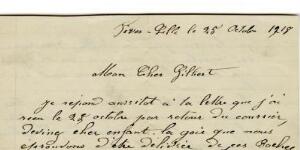 le 25 Octobre 1918
Mon Cher Gilbert
Je répond aussitot à la lettre que j'ai
recu le 25 octobre par retour du courrier,
devinez cher enfant, la joie que nous
éprouvons d'être délivrés de ces Boches